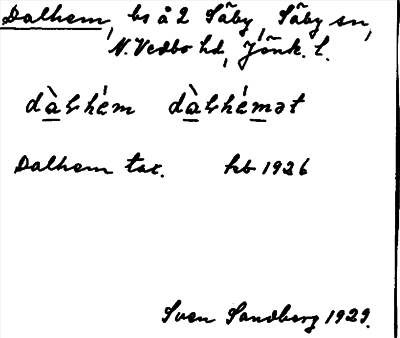 Dalhem, bs å 2 Säby, Säby sn,
N. Vedbo hd, Jönk. l.
dàɽhém dàɽhémət
Dalhem tax. hb 1926
Sven Sandberg 1929.